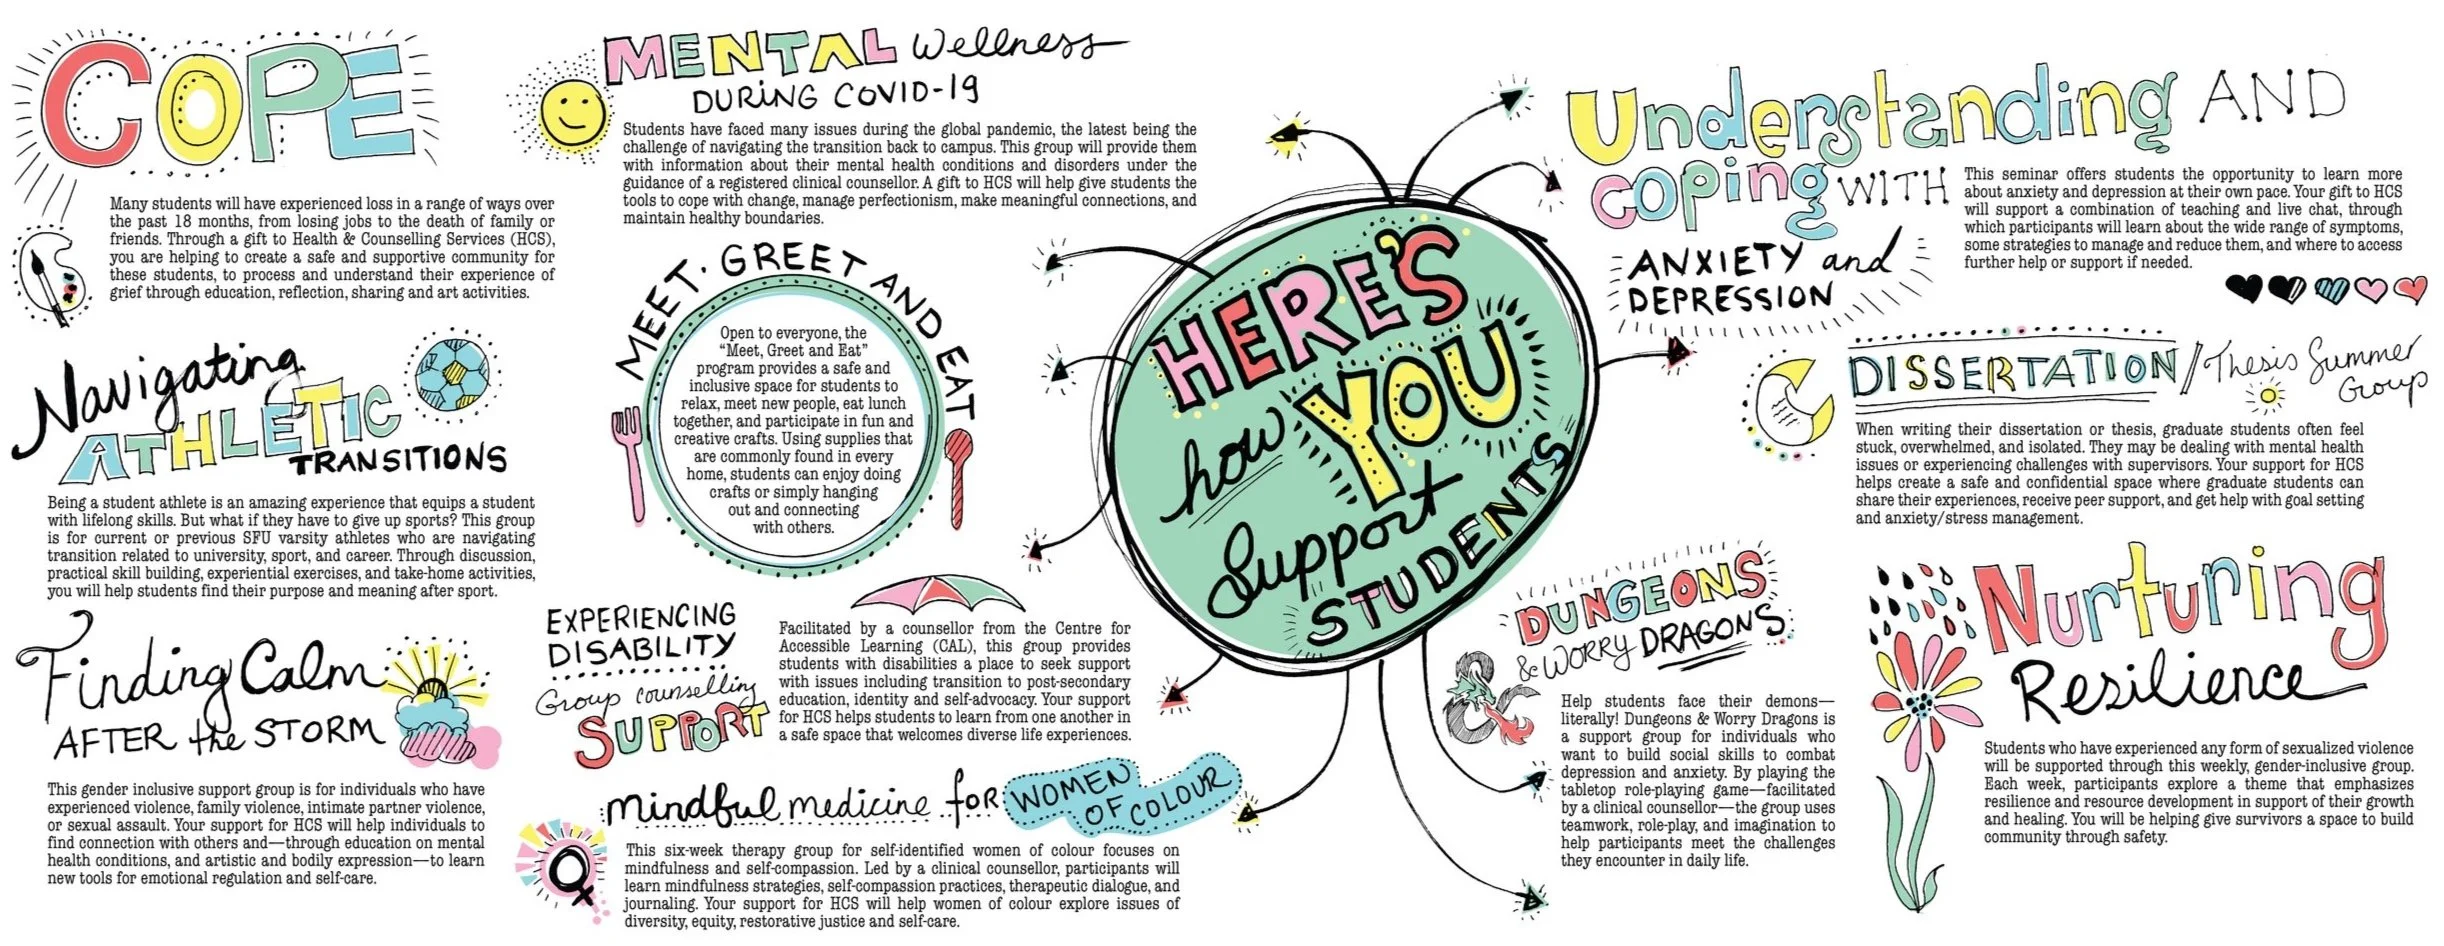 COPE
Many students will have experienced loss in a range of ways over
the past 18 months, from losing jobs to the death of family or
friends. Through a gift to Health & Counselling Services (HCS),
you are helping to create a safe and supportive community for
these students, to process and understand their experience of
grief through education, reflection, sharing and art activities.
Navigating
ATHLETIC
TRANSITIONS
Being a student athlete is an amazing experience that equips a student
with lifelong skills. But what if they have to give up sports? This group
is for current or previous SFU varsity athletes who are navigating
transition related to university, sport, and career. Through discussion,
practical skill building, experiential exercises, and take-home activities,
you will help students find their purpose and meaning after sport.
Finding Calm
AFTER the STORM
This gender inclusive support group is for individuals who have
experienced violence, family violence, intimate partner violence,
or sexual assault. Your support for HCS will help individuals to
find connection with others and—through education on mental
health conditions, and artistic and bodily expression—to learn
new tools for emotional regulation and self-care.
MENTAL Wellness
DURING COVID-19
Students have faced many issues during the global pandemic, the latest being the
challenge of navigating the transition back to campus. This group will provide them
with information about their mental health conditions and disorders under the
guidance of a registered clinical counsellor. A gift to HCS will help give students the
tools to cope with change, manage perfectionism, make meaningful connections, and
maintain healthy boundaries.
MEET, GREET AND EAT
Open to everyone, the
“Meet, Greet and Eat”
program provides a safe and
inclusive space for students to
relax, meet new people, eat lunch
together, and participate in fun and
creative crafts. Using supplies that
are commonly found in every
home, students can enjoy doing
crafts or simply hanging
out and connecting
with others.
EXPERIENCING
DISABILITY
Group counselling
SUPPORT
Facilitated by a counsellor from the Centre for
Accessible Learning (CAL), this group provides
students with disabilities a place to seek support
with issues including transition to post-secondary
education, identity and self-advocacy. Your support
for HCS helps students to learn from one another in
a safe space that welcomes diverse life experiences.
mindful medicine for WOMEN
OF COLOUR
This six-week therapy group for self-identified women of colour focuses on
mindfulness and self-compassion. Led by a clinical counsellor, participants will
learn mindfulness strategies, self-compassion practices, therapeutic dialogue, and
journaling. Your support for HCS will help women of colour explore issues of
diversity, equity, restorative justice and self-care.
HERE'S
how YOU
Support
STUDENTS
Understanding AND
coping WITH
ANXIETY and
DEPRESSION
This seminar offers students the opportunity to learn more
about anxiety and depression at their own pace. Your gift to HCS
will support a combination of teaching and live chat, through
which participants will learn about the wide range of symptoms,
some strategies to manage and reduce them, and where to access
further help or support if needed.
DISSERTATION / Thesis Summer
Group
When writing their dissertation or thesis, graduate students often feel
stuck, overwhelmed, and isolated. They may be dealing with mental health
issues or experiencing challenges with supervisors. Your support for HCS
helps create a safe and confidential space where graduate students can
share their experiences, receive peer support, and get help with goal setting
and anxiety/stress management.
DUNGEONS
& WORRY DRAGONS
Help students face their demons—
literally! Dungeons & Worry Dragons is
a support group for individuals who
want to build social skills to combat
depression and anxiety. By playing the
tabletop role-playing game—facilitated
by a clinical counsellor—the group uses
teamwork, role-play, and imagination to
help participants meet the challenges
they encounter in daily life.
Nurturing
Resilience
Students who have experienced any form of sexualized violence
will be supported through this weekly, gender-inclusive group.
Each week, participants explore a theme that emphasizes
resilience and resource development in support of their growth
and healing. You will be helping give survivors a space to build
community through safety.